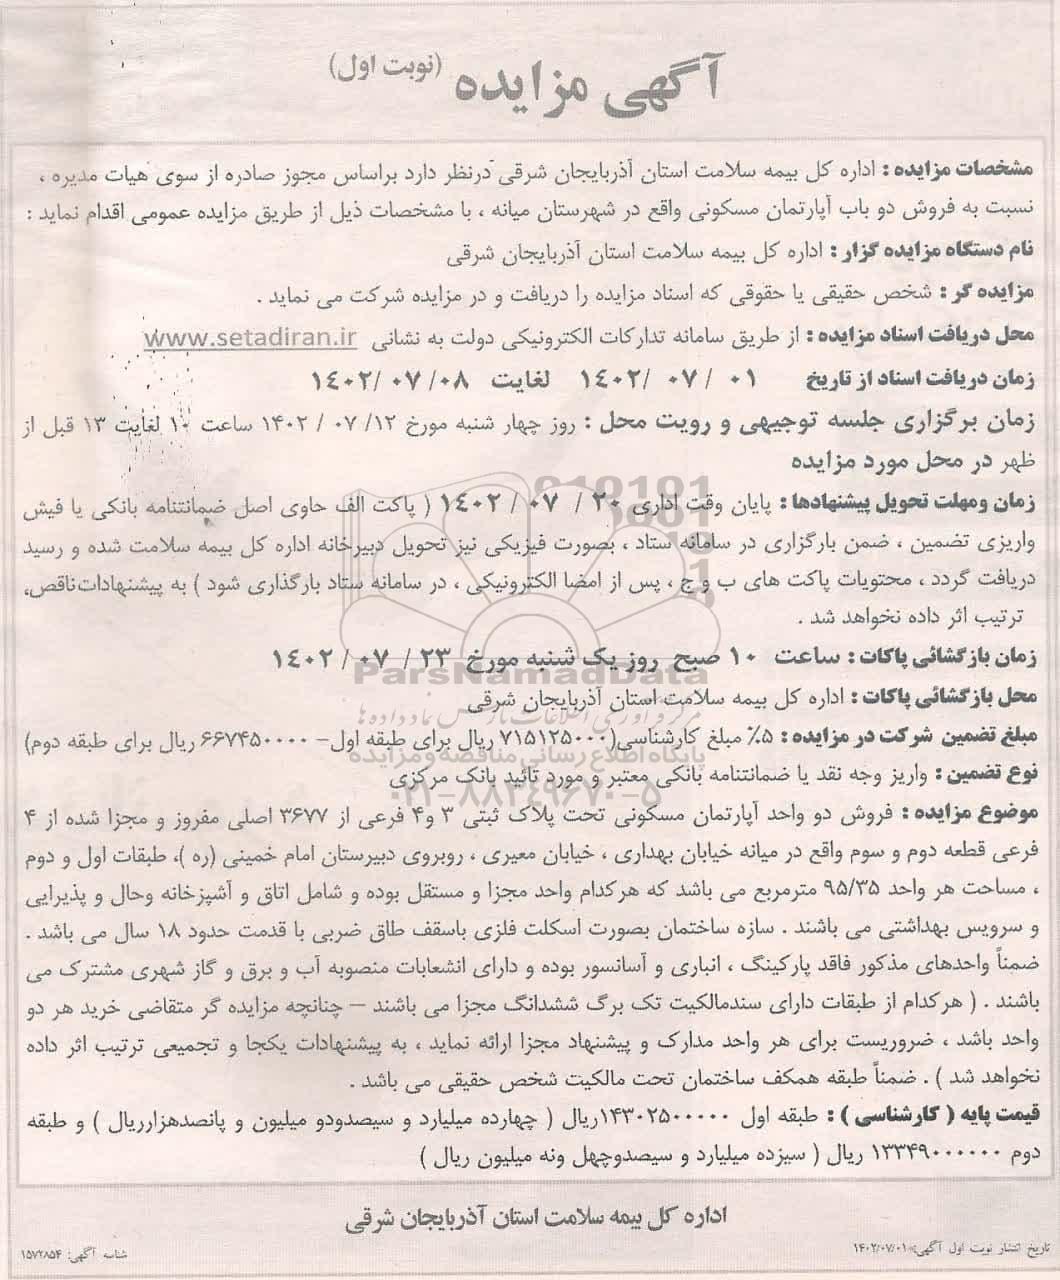 آگهی مزایده (نوبت اول)
مشخصات مزایده : اداره کل بیمه سلامت استان آذربایجان شرقی درنظر دارد براساس مجوز صادره از سوی هیات مدیره ،
نسبت به فروش دو باب آپارتمان مسکونی واقع در شهرستان میانه ، با مشخصات ذیل از طریق مزایده عمومی اقدام نماید :
نام دستگاه مزایده گزار : اداره کل بیمه سلامت استان آذربایجان شرقی
مزایده گر : شخص حقیقی یا حقوقی که اسناد مزایده را دریافت و در مزایده شرکت می نماید .
محل دریافت اسناد مزایده : از طریق سامانه تدارکات الکترونیکی دولت به نشانی www.setadiran.ir
زمان دریافت اسناد از تاریخ ۰۱ / ۰۷ /۱۴۰۲ لغایت ۰۸ /۰۷ /۱۴۰۲
زمان برگزاری جلسه توجیهی و رویت محل : روز چهار شنبه مورخ ۱۲/ ۰۷ / ۱۴۰۲ ساعت ۱۰ لغایت ۱۳ قبل از
ظهر در محل مورد مزایده
زمان ومهلت تحویل پیشنهادها : پایان وقت اداری ۲۰ / ۰۷ / ۱۴۰۲ ( پاکت الف حاوی اصل ضمانتنامه بانکی یا فیش
واریزی تضمین ، ضمن بارگزاری در سامانه ستاد ، بصورت فیزیکی نیز تحویل دبیرخانه اداره کل بیمه سلامت شده و رسید
دریافت گردد ، محتویات پاکت های ب و ج ، پس از امضا الکترونیکی ، در سامانه ستاد بارگذاری شود ) به پیشنهادات ناقص،
ترتیب اثر داده نخواهد شد .
زمان بازگشائی پاکات : ساعت ۱۰ صبح روز یک شنبه مورخ ۲۳ / ۰۷ / ۱۴۰۲
ParsNamadData
محل بازگشائی پاکات : اداره کل بیمه سلامت استان آذربایجان شرقی
مبلغ تضمین شرکت در مزایده : ۵٪ مبلغ کارشناسی(۷۱۵۱۲۵۰۰۰ ریال برای طبقه اول- ۶۶۷۴۵۰۰۰۰ ریال برای طبقه دوم)
پایگاه اطلاع رسانی مناقصه و مزایده
نوع تضمین : واریز وجه نقد یا ضمانتنامه بانکی معتبر و مورد تائید بانک مرکزی
۰۲۱-۸۸۳۴۹۶۷۰-۵
موضوع مزایده : فروش دو واحد آپارتمان مسکونی تحت پلاک ثبتی ۳ و۴ فرعی از ۳۶۷۷ اصلی مفروز و مجزا شده از ۴
فرعی قطعه دوم و سوم واقع در میانه خیابان بهداری ، خیابان معیری ، روبروی دبیرستان امام خمینی (ره )، طبقات اول و دوم
، مساحت هر واحد ۹۵/۳۵ مترمربع می باشد که هرکدام واحد مجزا و مستقل بوده و شامل اتاق و آشپزخانه وحال و پذیرایی
و سرویس بهداشتی می باشند . سازه ساختمان بصورت اسکلت فلزی باسقف طاق ضربی با قدمت حدود ۱۸ سال می باشد .
ضمناً واحدهای مذکور فاقد پارکینگ ، انباری و آسانسور بوده و دارای انشعابات منصوبه آب و برق و گاز شهری مشترک می
باشند . ( هرکدام از طبقات دارای سندمالکیت تک برگ ششدانگ مجزا می باشند – چنانچه مزایده گر متقاضی خرید هر دو
واحد باشد ، ضروریست برای هر واحد مدارک و پیشنهاد مجزا ارائه نماید ، به پیشنهادات یکجا و تجمیعی ترتیب اثر داده
نخواهد شد ) . ضمناً طبقه همکف ساختمان تحت مالکیت شخص حقیقی می باشد .
قیمت پایه ( کارشناسی ) : طبقه اول ۱۴۳۰۲۵۰۰۰۰۰ریال ( چهارده میلیارد و سیصدودو میلیون و پانصدهزارریال ) و طبقه
دوم ۱۳۳۴۹۰۰۰۰۰۰ ریال ( سیزده میلیارد و سیصدوچهل ونه میلیون ریال )
اداره کل بیمه سلامت استان آذربایجان شرقی
تاریخ انتشار نوبت اول آگهی: ۱۴۰۲/۰۷/۰۱
شناسه آگهی: ۱۵۷۲۸۵۴